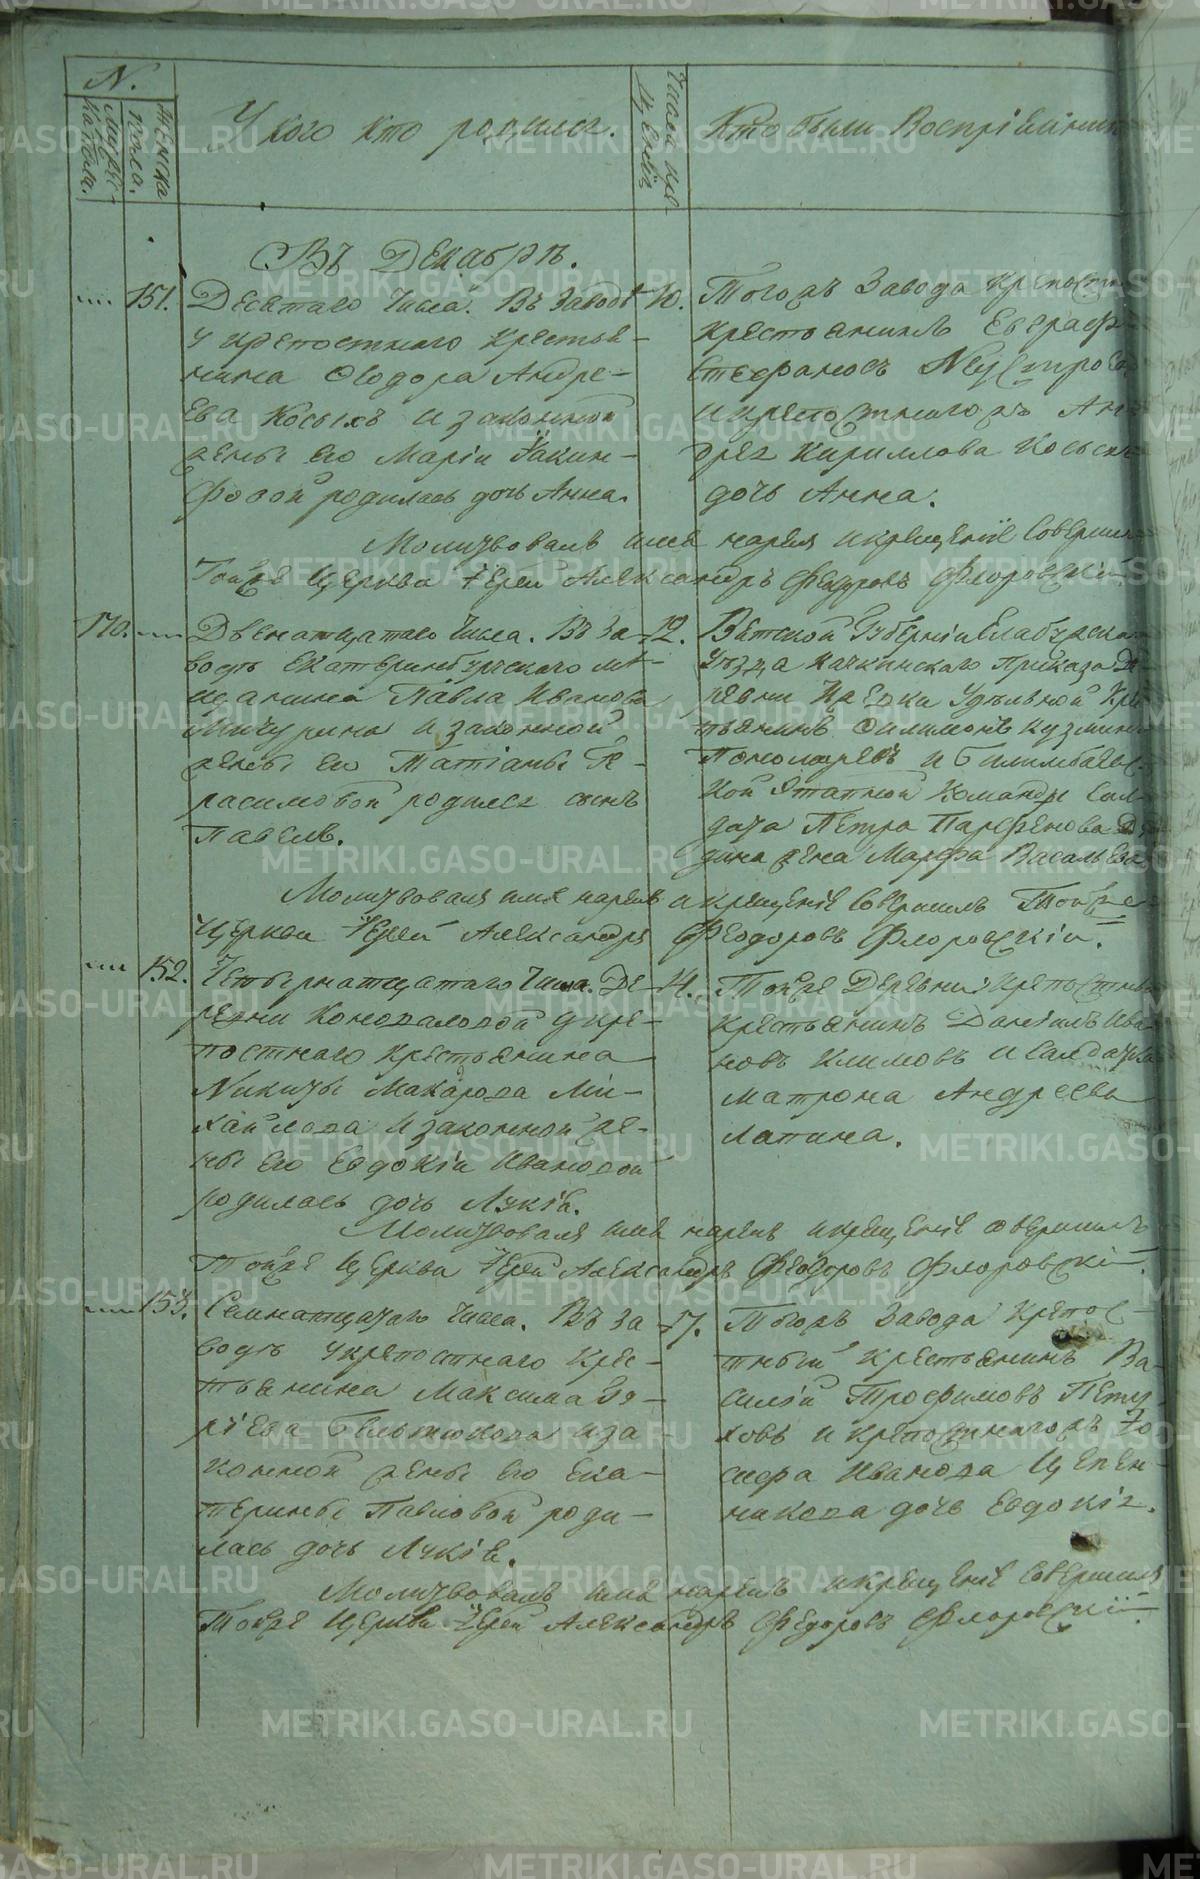 N.
Мужеска пола.
Женска пола.
У кого кто родился.
Числа крещенія
Кто были Воспріемник
Въ Декабрѣ.
151. Десятаго Числа. Въ Заводѣ
у крепостнаго крестья-
нина Ѳеодора Андре-
ева Косыхъ и законной
жены его Маріи Іакин-
фовой родилась дочь Анна.
10. Тогожъ Завода крепостн
крестьянинъ Евграф
Стефановъ Неустроев
и крепостнагожъ Ан-
дрея Кириллова Косыхъ
дочь Анна.
Молитвовалъ имя нарекъ и крещеніе Соверши
Тойже Церкви Іерей Александръ Феодоровъ Флоровскій.
170. Двенатцатаго Числа. Въ За-
водѣ Екатеринбургскаго мѣ-
щанина Павла Иванова
Мичурина и законной
жены его Татіаны Ге-
расимовой родился сынъ
Павелъ.
12. Вятской Губерніи Елабужска
Уѣзда Качкинскаго Приказа Де-
ревни Удѣльной Кре
тьянинъ Филимонъ Кузмин
Пономаревъ и Билимбаевс-
кой Этапной Команды Сол-
дата Петра Парфенова
жена Марфа Васильева
Молитвовалъ имя нарекъ и крещеніе Совершилъ Тойже
Церкви Іерей Александръ Феодоровъ Флоровскій.
152. Четвернатцатаго Числа. Де-
ревни Коноваловой у кре-
постнаго крестьянина
Никиты Макарова Ми-
хайлова и законной же-
ны его Евдокіи Ивановой
родилась дочь Лукія.
14. Тойже Деревни: крепостный
крестьянинъ Даніилъ Ива-
новъ Климовъ и Салдатка
Матрона Андреева
Лапина.
Молитвовалъ имя нарекъ и крещеніе совершилъ
Тойже Церкви Іерей Александръ Феодоровъ Флоровскій.
153. Семнатцатаго Числа. Въ За-
водѣ у крепостнаго Крес-
тьянина Максима
Бельтюкова и за-
конной жены его Ека-
терины Павловой роди-
лась дочь Лукія.
17. Тогожъ Завода Крепос-
тный крестьянинъ Ва-
силій Трофимовъ Пету-
ховъ и крепостнагожъ Іо-
сифа Иванова Цепен-
никова дочь Евдокія.
Молитвовалъ имя нарекъ и крещеніе Совершилъ
Тойже Церкви Іерей Александръ Федоровъ Флоровскій
METRIKI.GASO-URAL.RU